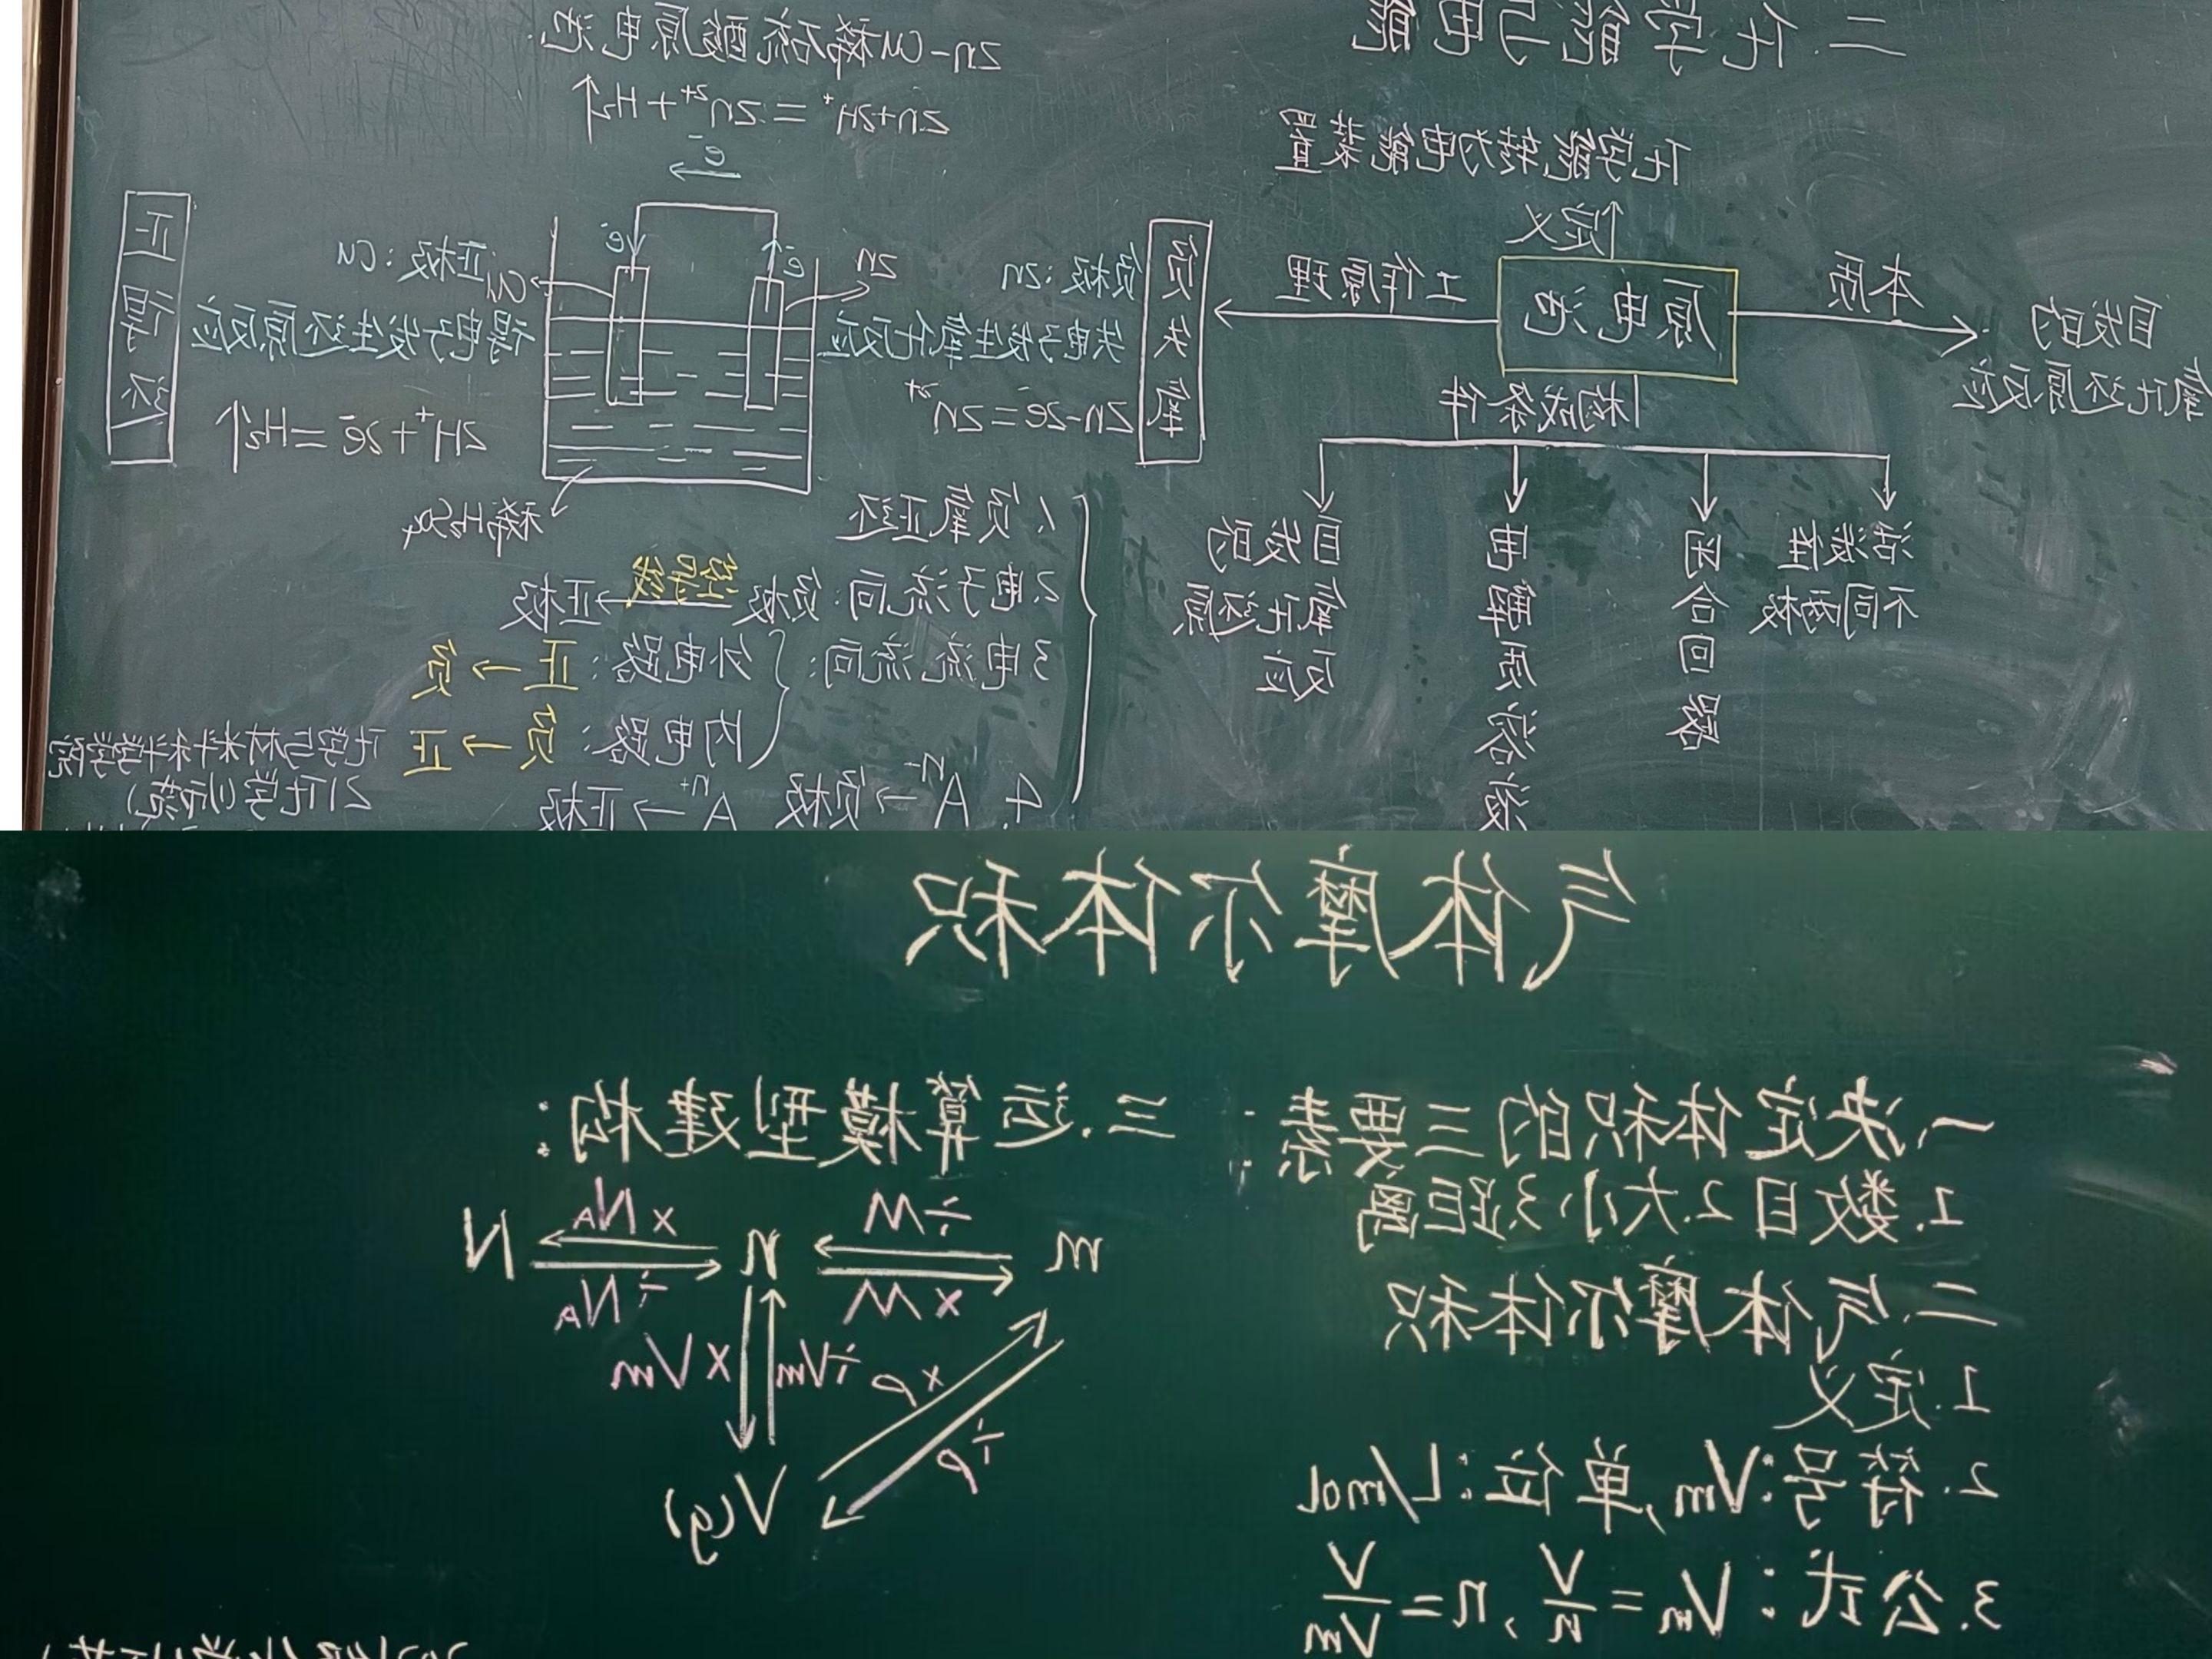 二.化学能与电能
化学能转为电能装置
定义
本质
自发的
氧化还原反应
原电池
工作原理
构成条件
活泼性
不同两极
闭合回路
电解质溶液
自发的
氧化还原
反应
负失氧
Zn-Cu稀硫酸原电池.
Zn+2H⁺=Zn²⁺+H₂↑
e⁻
负极:Zn
失电子发生氧化反应
Zn-2e⁻=Zn²⁺
Zn
e⁻
e⁻
Cu
正极:Cu
得电子发生还原反应
2H⁺+2e⁻=H₂↑
正得还
稀H₂SO₄
1.负氧正还
2.电子流向:负极 经导线→ 正极
3.电流流向:
外电路:正→负
内电路:负→正
4. Aⁿ⁻→负极 Aⁿ⁺→正极
化学与材料科学学院
21化学(师范)
气体摩尔体积
一、决定体积的三要素:
1.数目2.大小3.距离
二.气体摩尔体积
1.定义
2.符号:Vm,单位:L/mol
3.公式:Vm=V/n,n=V/Vm
三.运算模型建构:
m ÷M n ×NA N
×M ÷NA
×Vm ÷Vm ×ρ
÷ρ
V(g)